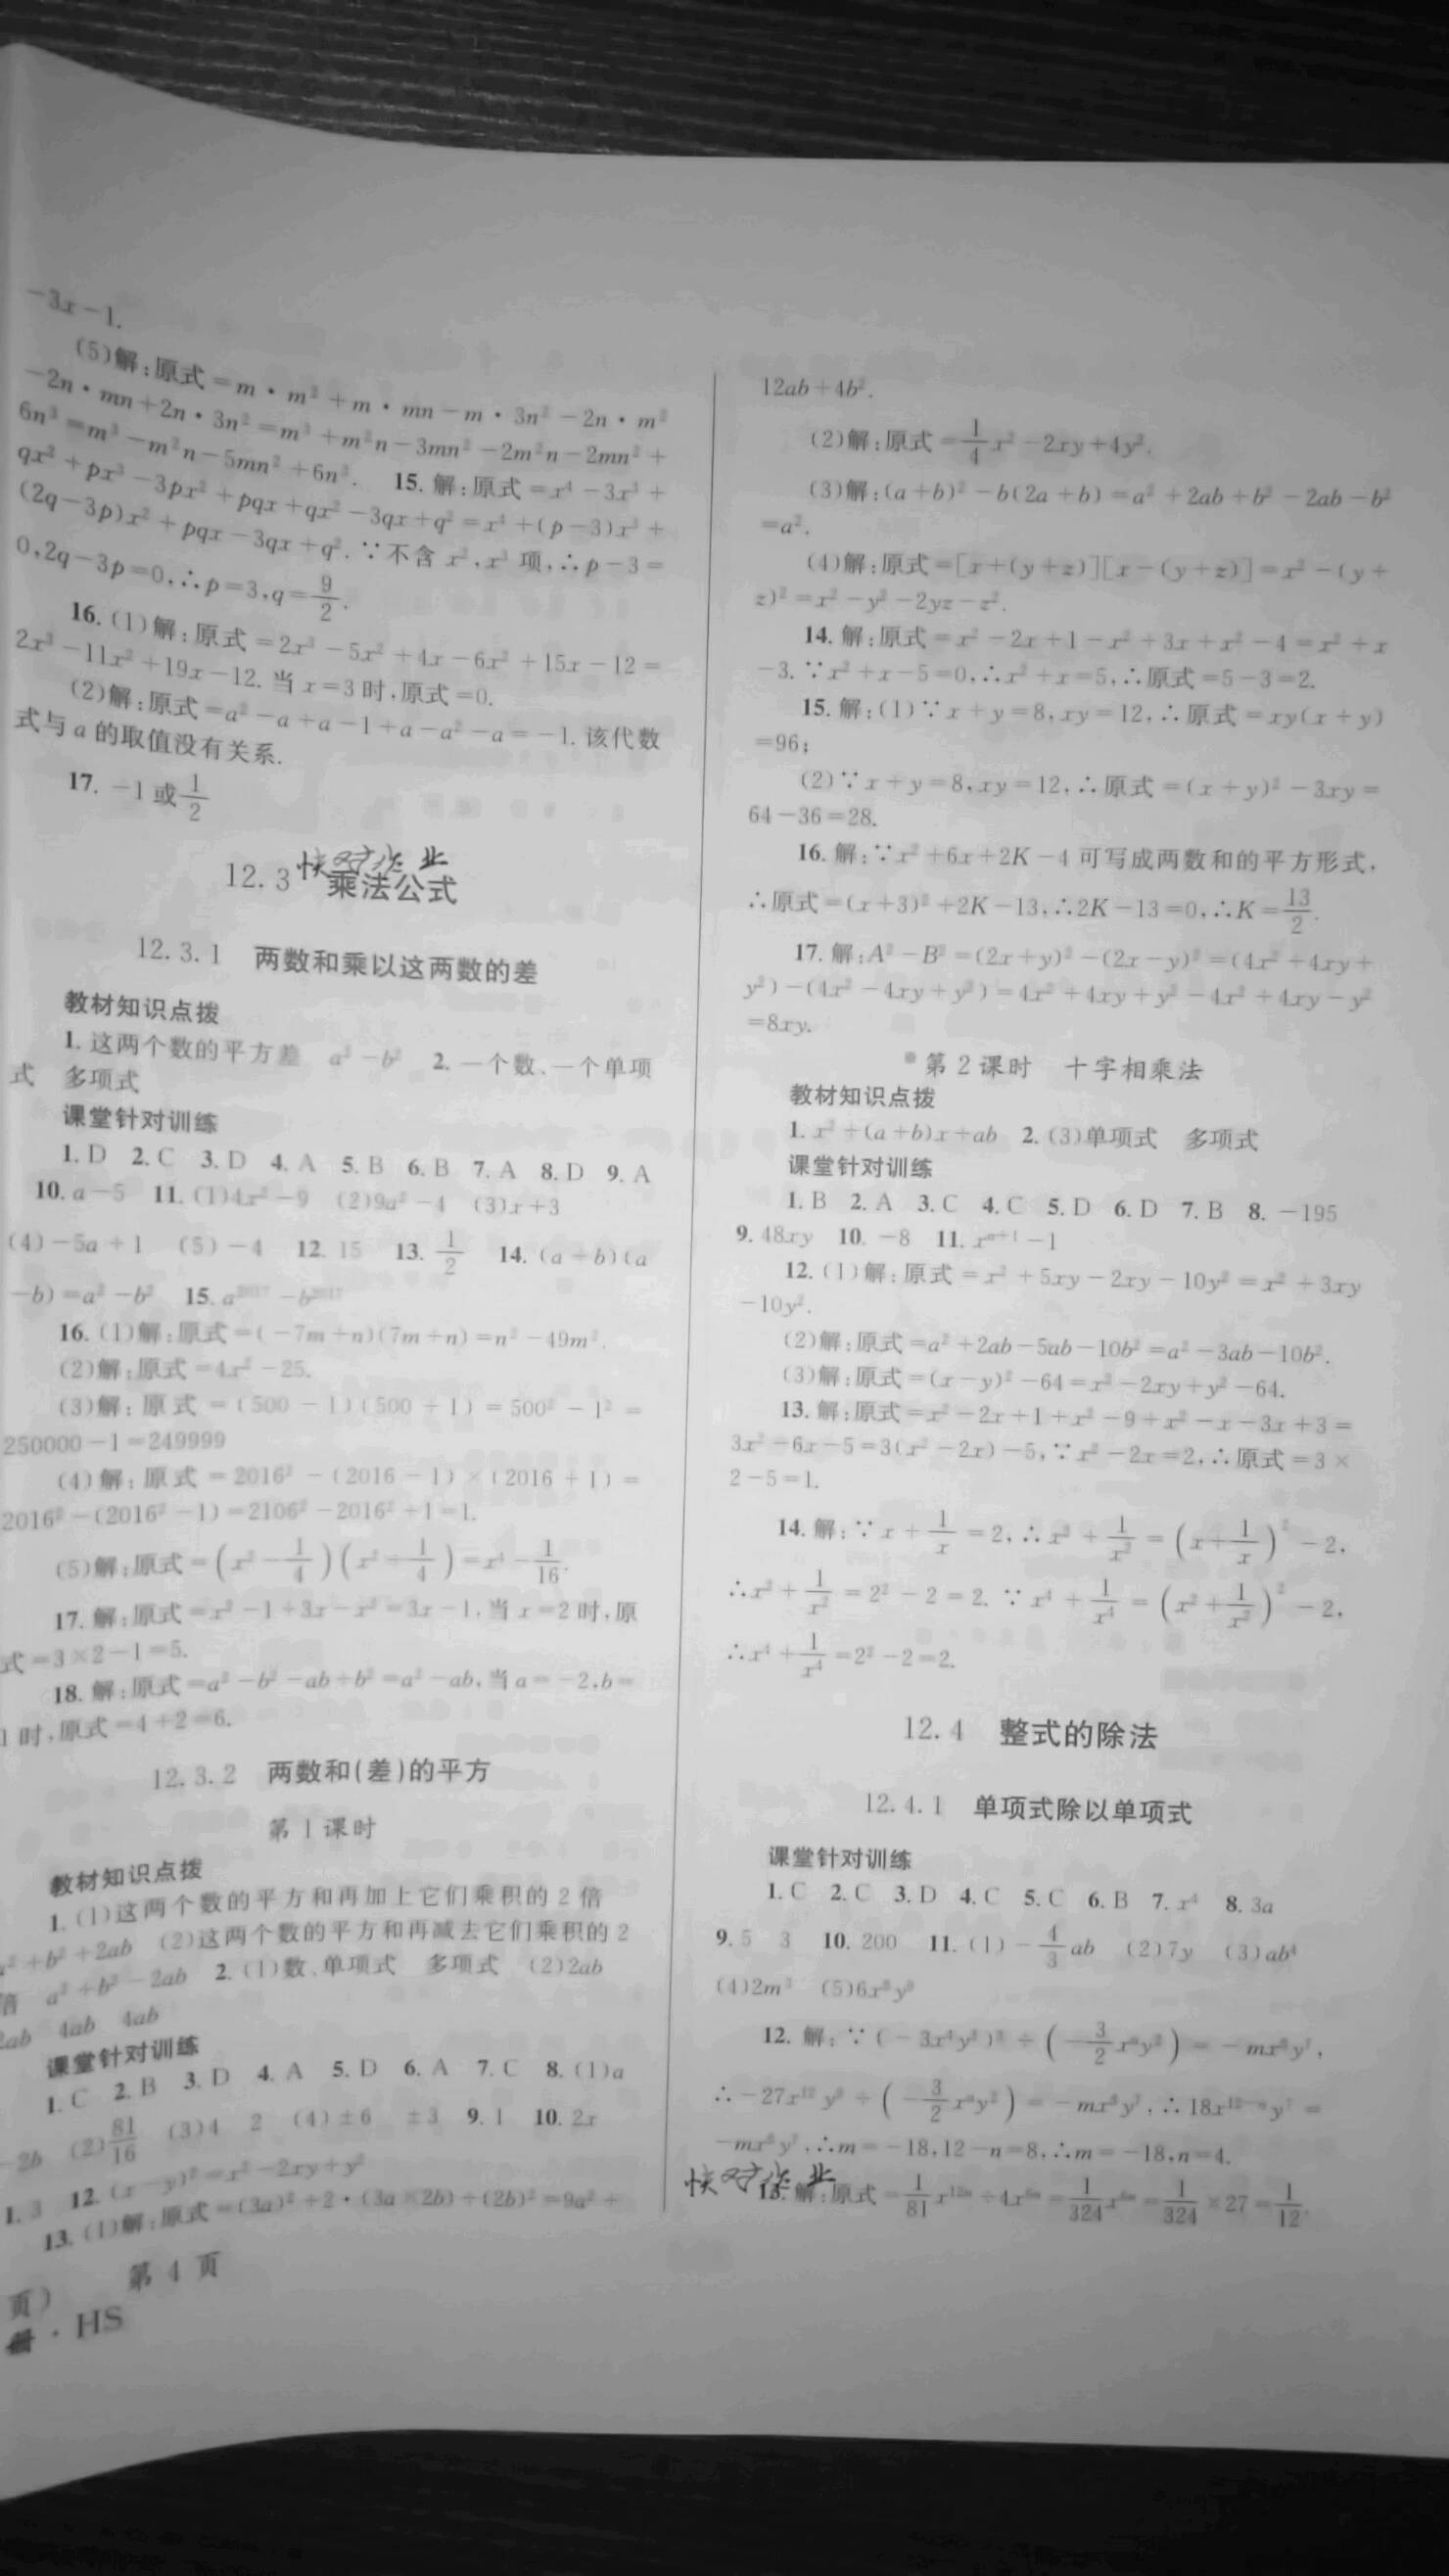 -3x-1.
(5)解:原式=m·m²+m·mn-m·3n²-2n·m²
-2n·mn+2n·3n²=m³+m²n-3mn²-2m²n-2mn²+
6n³=m³-m²n-5mn²+6n³. 15.解:原式=x⁴-3x³+
qx²+px³-3px²+pqx+qx²-3qx+q²=x⁴+(p-3)x³+
(2q-3p)x²+pqx-3qx+q².∵不含x²,x³项,∴p-3=
0,2q-3p=0,∴p=3,q=9/2.
16.(1)解:原式=2x³-5x²+4x-6x²+15x-12=
2x³-11x²+19x-12.当x=3时,原式=0.
(2)解:原式=a²-a+a-1+a-a²-a=-1.该代数
式与a的取值没有关系.
17. -1或1/2
快对作业
12.3 乘法公式
12.3.1 两数和乘以这两数的差
教材知识点拨
1.这两个数的平方差 a²-b² 2.一个数、一个单项
式 多项式
课堂针对训练
1.D 2.C 3.D 4.A 5.B 6.B 7.A 8.D 9.A
10.a-5 11.(1)4x²-9 (2)9a²-4 (3)x+3
(4)-5a+1 (5)-4 12.15 13.1/2 14.(a+b)(a
-b)=a²-b² 15.a²⁰¹⁷-b²⁰¹⁷
16.(1)解:原式=(-7m+n)(7m+n)=n²-49m².
(2)解:原式=4x²-25.
(3)解:原式=(500-1)(500+1)=500²-1²=
250000-1=249999
(4)解:原式=2016²-(2016-1)×(2016+1)=
2016²-(2016²-1)=2106²-2016²+1=1.
(5)解:原式=(x²-1/4)(x²+1/4)=x⁴-1/16.
17.解:原式=x²-1+3x-x²=3x-1,当x=2时,原
式=3×2-1=5.
18.解:原式=a²-b²-ab+b²=a²-ab,当a=-2,b=
1时,原式=4+2=6.
12.3.2 两数和(差)的平方
第1课时
教材知识点拨
1.(1)这两个数的平方和再加上它们乘积的2倍
a²+b²+2ab (2)这两个数的平方和再减去它们乘积的2
倍 a²+b²-2ab 2.(1)数、单项式 多项式 (2)2ab
2ab 4ab 4ab
课堂针对训练
1.C 2.B 3.D 4.A 5.D 6.A 7.C 8.(1)a
-2b (2)81/16 (3)4 2 (4)±6 ±3 9.1 10.2x
1.3 12.(x-y)²=x²-2xy+y²
13.(1)解:原式=(3a)²+2·(3a×2b)+(2b)²=9a²+
第4页
页)
册·HS
12ab+4b².
(2)解:原式=1/4x²-2xy+4y².
(3)解:(a+b)²-b(2a+b)=a²+2ab+b²-2ab-b²
=a².
(4)解:原式=[x+(y+z)][x-(y+z)]=x²-(y+
z)²=x²-y²-2yz-z².
14.解:原式=x²-2x+1-x²+3x+x²-4=x²+x
-3.∵x²+x-5=0,∴x²+x=5,∴原式=5-3=2.
15.解:(1)∵x+y=8,xy=12,∴原式=xy(x+y)
=96;
(2)∵x+y=8,xy=12,∴原式=(x+y)²-3xy=
64-36=28.
16.解:∵x²+6x+2K-4可写成两数和的平方形式,
∴原式=(x+3)²+2K-13,∴2K-13=0,∴K=13/2.
17.解:A²-B²=(2x+y)²-(2x-y)²=(4x²+4xy+
y²)-(4x²-4xy+y²)=4x²+4xy+y²-4x²+4xy-y²
=8xy.
第2课时 十字相乘法
教材知识点拨
1.x²+(a+b)x+ab 2.(3)单项式 多项式
课堂针对训练
1.B 2.A 3.C 4.C 5.D 6.D 7.B 8.-195
9.48xy 10.-8 11.xⁿ⁺¹-1
12.(1)解:原式=x²+5xy-2xy-10y²=x²+3xy
-10y².
(2)解:原式=a²+2ab-5ab-10b²=a²-3ab-10b².
(3)解:原式=(x-y)²-64=x²-2xy+y²-64.
13.解:原式=x²-2x+1+x²-9+x²-x-3x+3=
3x²-6x-5=3(x²-2x)-5,∵x²-2x=2,∴原式=3×
2-5=1.
14.解:∵x+1/x=2,∴x²+1/x²=(x+1/x)²-2,
∴x²+1/x²=2²-2=2.∵x⁴+1/x⁴=(x²+1/x²)²-2,
∴x⁴+1/x⁴=2²-2=2.
12.4 整式的除法
12.4.1 单项式除以单项式
课堂针对训练
1.C 2.C 3.D 4.C 5.C 6.B 7.x⁴ 8.3a
9.5 3 10.200 11.(1)-4/3ab (2)7y (3)ab⁴
(4)2m³ (5)6x⁸y⁹
12.解:∵(-3x⁴y³)³÷(-3/2xⁿy²)=-mx⁸y⁷,
∴-27x¹²y⁹÷(-3/2xⁿy²)=-mx⁸y⁷,∴18x¹²⁻ⁿy⁷=
-mx⁸y⁷,∴m=-18,12-n=8,∴m=-18,n=4.
快对作业
13.解:原式=1/81x¹²ⁿ÷4x⁶ⁿ=1/324x⁶ⁿ=1/324×27=1/12.